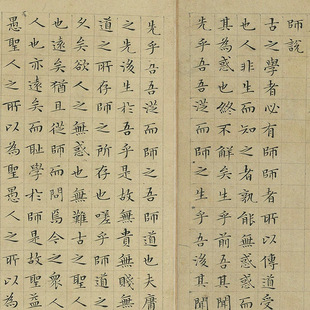 師說
古之學者必有師師者所以傳道受
也人非生而知之者孰能無惑惑而
其為惑也終不解矣生乎前吾其聞
先乎吾吾從而師之生乎吾後其聞
先乎吾吾從而師之吾師道也夫庸
之先後生於吾乎是故無貴無賤無
道之所存師之所存也嗟乎師道之
久矣欲人之無惑也無難古之
也遠矣猶且從師而問焉今之衆人
人也亦遠矣而恥學於師是故聖益
愚聖人之所以為聖愚人之所以為